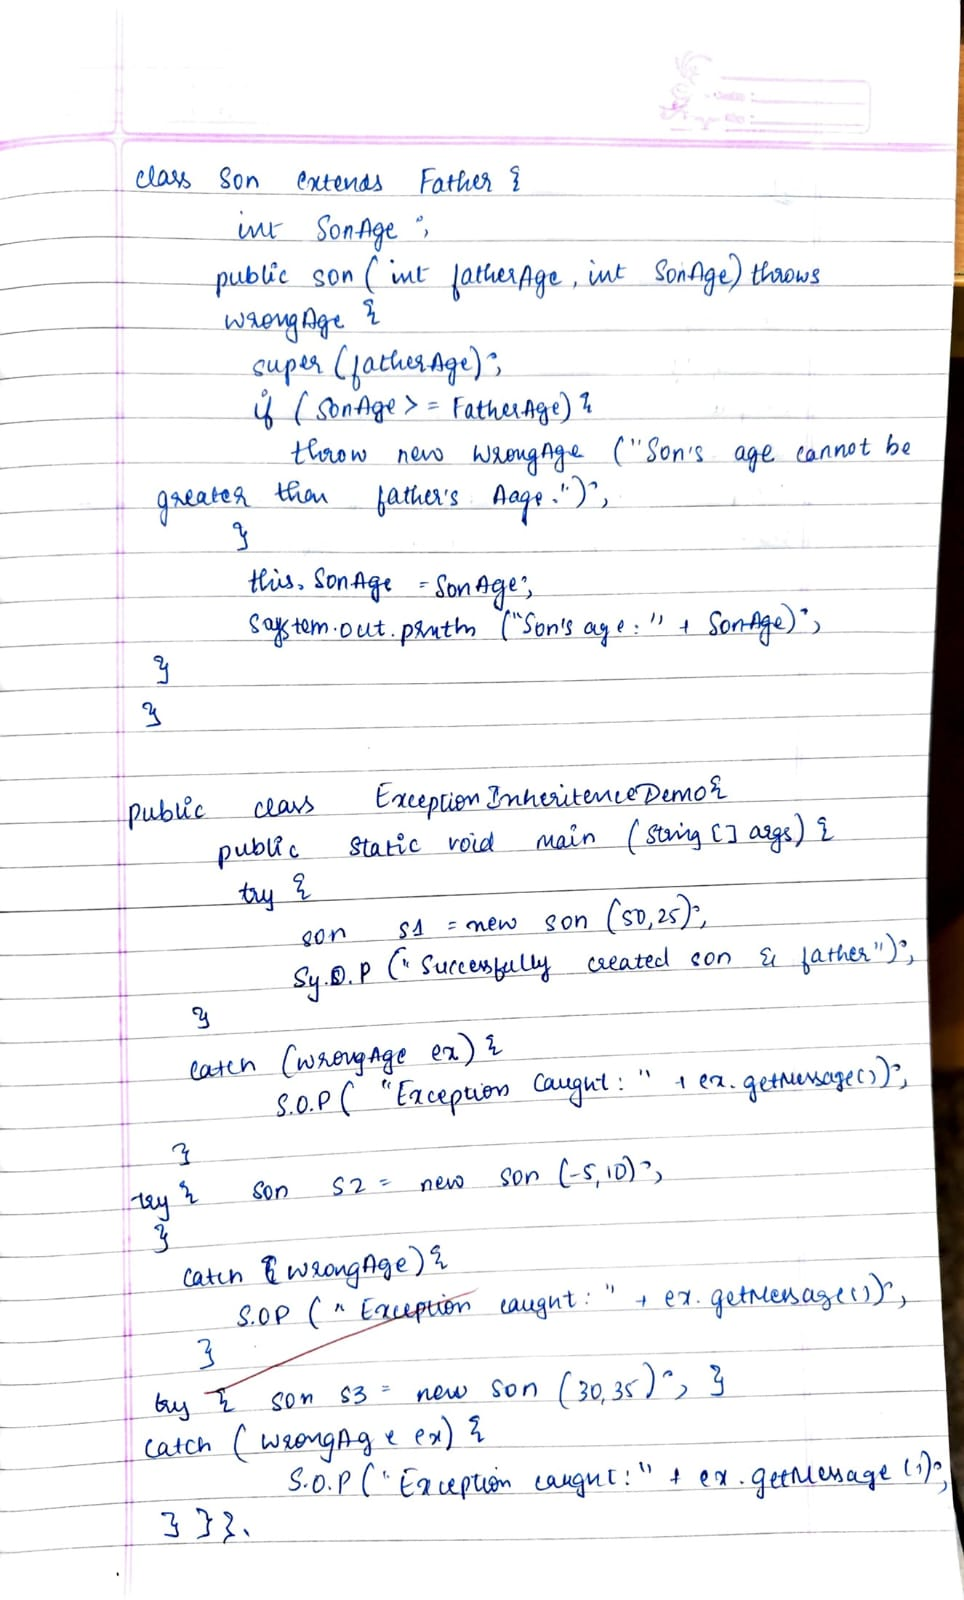 class Son extends Father {
int SonAge ;
public son ( int fatherAge, int SonAge) throws
WrongAge {
super (fatherAge);
if ( SonAge >= FatherAge) {
throw new WrongAge ("Son's age cannot be
greater than father's Aage.");
}
this. SonAge = SonAge;
System.out.println ("Son's age: " + SonAge);
}
}
public class ExceptionInheritenceDemo{
public static void main (String [] args) {
try {
son s1 = new son (50,25);
Sy.O.P ("Successfully created son & father");
}
catch (WrongAge ex) {
S.O.P ( "Exception Caught: " + ex.getMessage());
}
try { son s2 = new son (-5,10);
}
catch ( WrongAge) {
S.OP ( " Exception caught: " + ex.getMessage());
}
try { son s3 = new son (30,35); }
catch ( WrongAg e ex) {
S.O.P ("Exception caught:" + ex.getMessage ();
} } }.